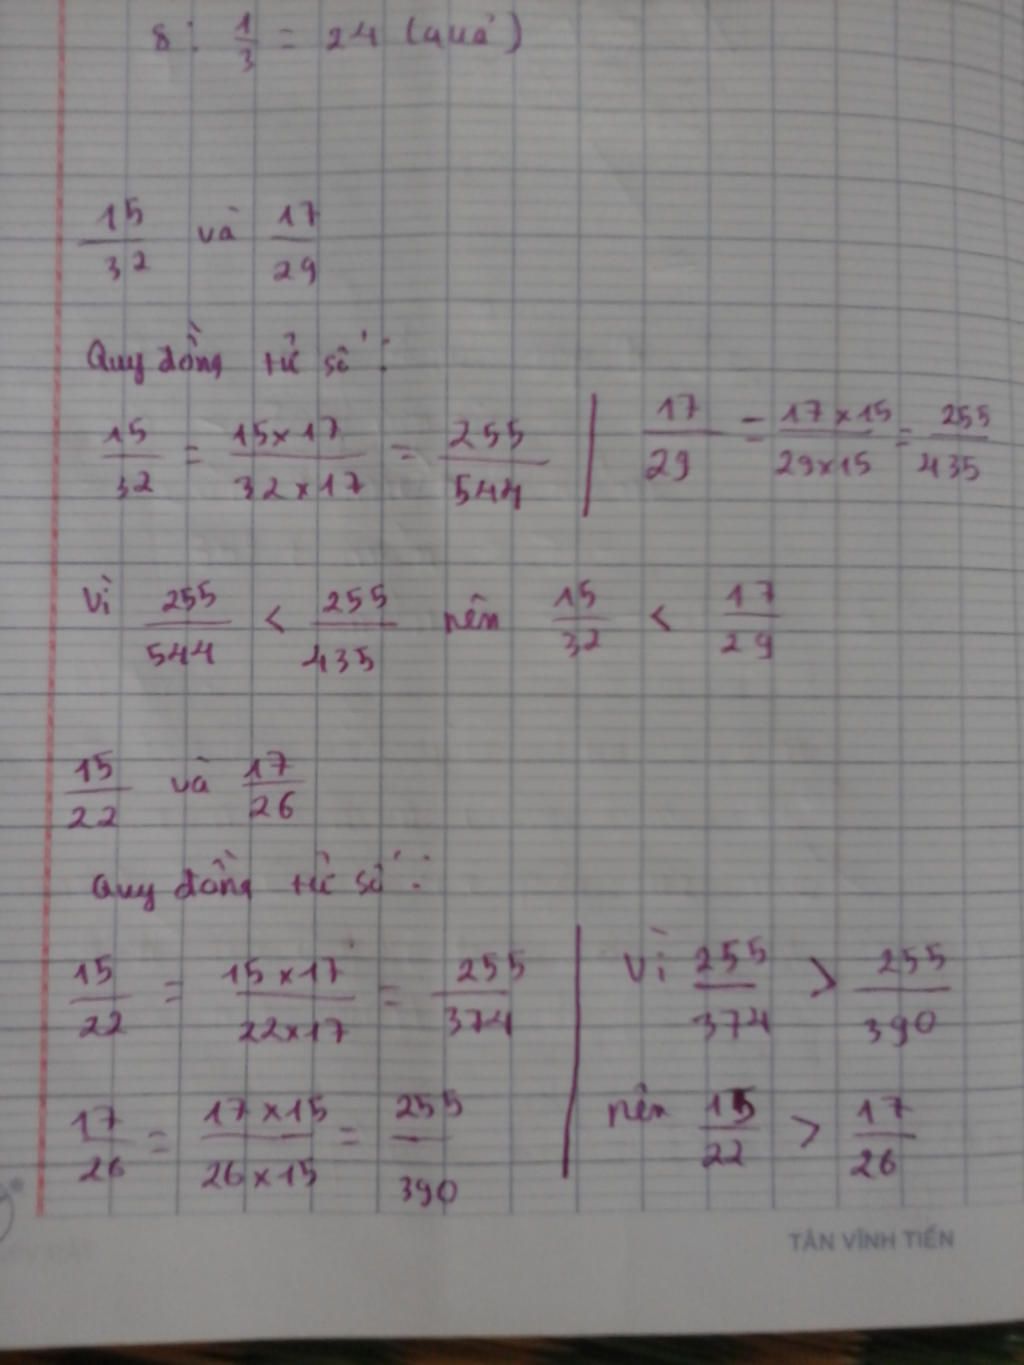 8 : 1/3 = 24 (quả)
15/32 và 17/29
Quy đồng tử số :
15/32 = 15x17/32x17 = 255/544 | 17/29 = 17x15/29x15 = 255/435
Vì 255/544 < 255/435 nên 15/32 < 17/29
15/22 và 17/26
Quy đồng tử số :
15/22 = 15x17/22x17 = 255/374 | Vì 255/374 > 255/390
17/26 = 17x15/26x15 = 255/390 | nên 15/22 > 17/26
TÂN VĨNH TIẾN